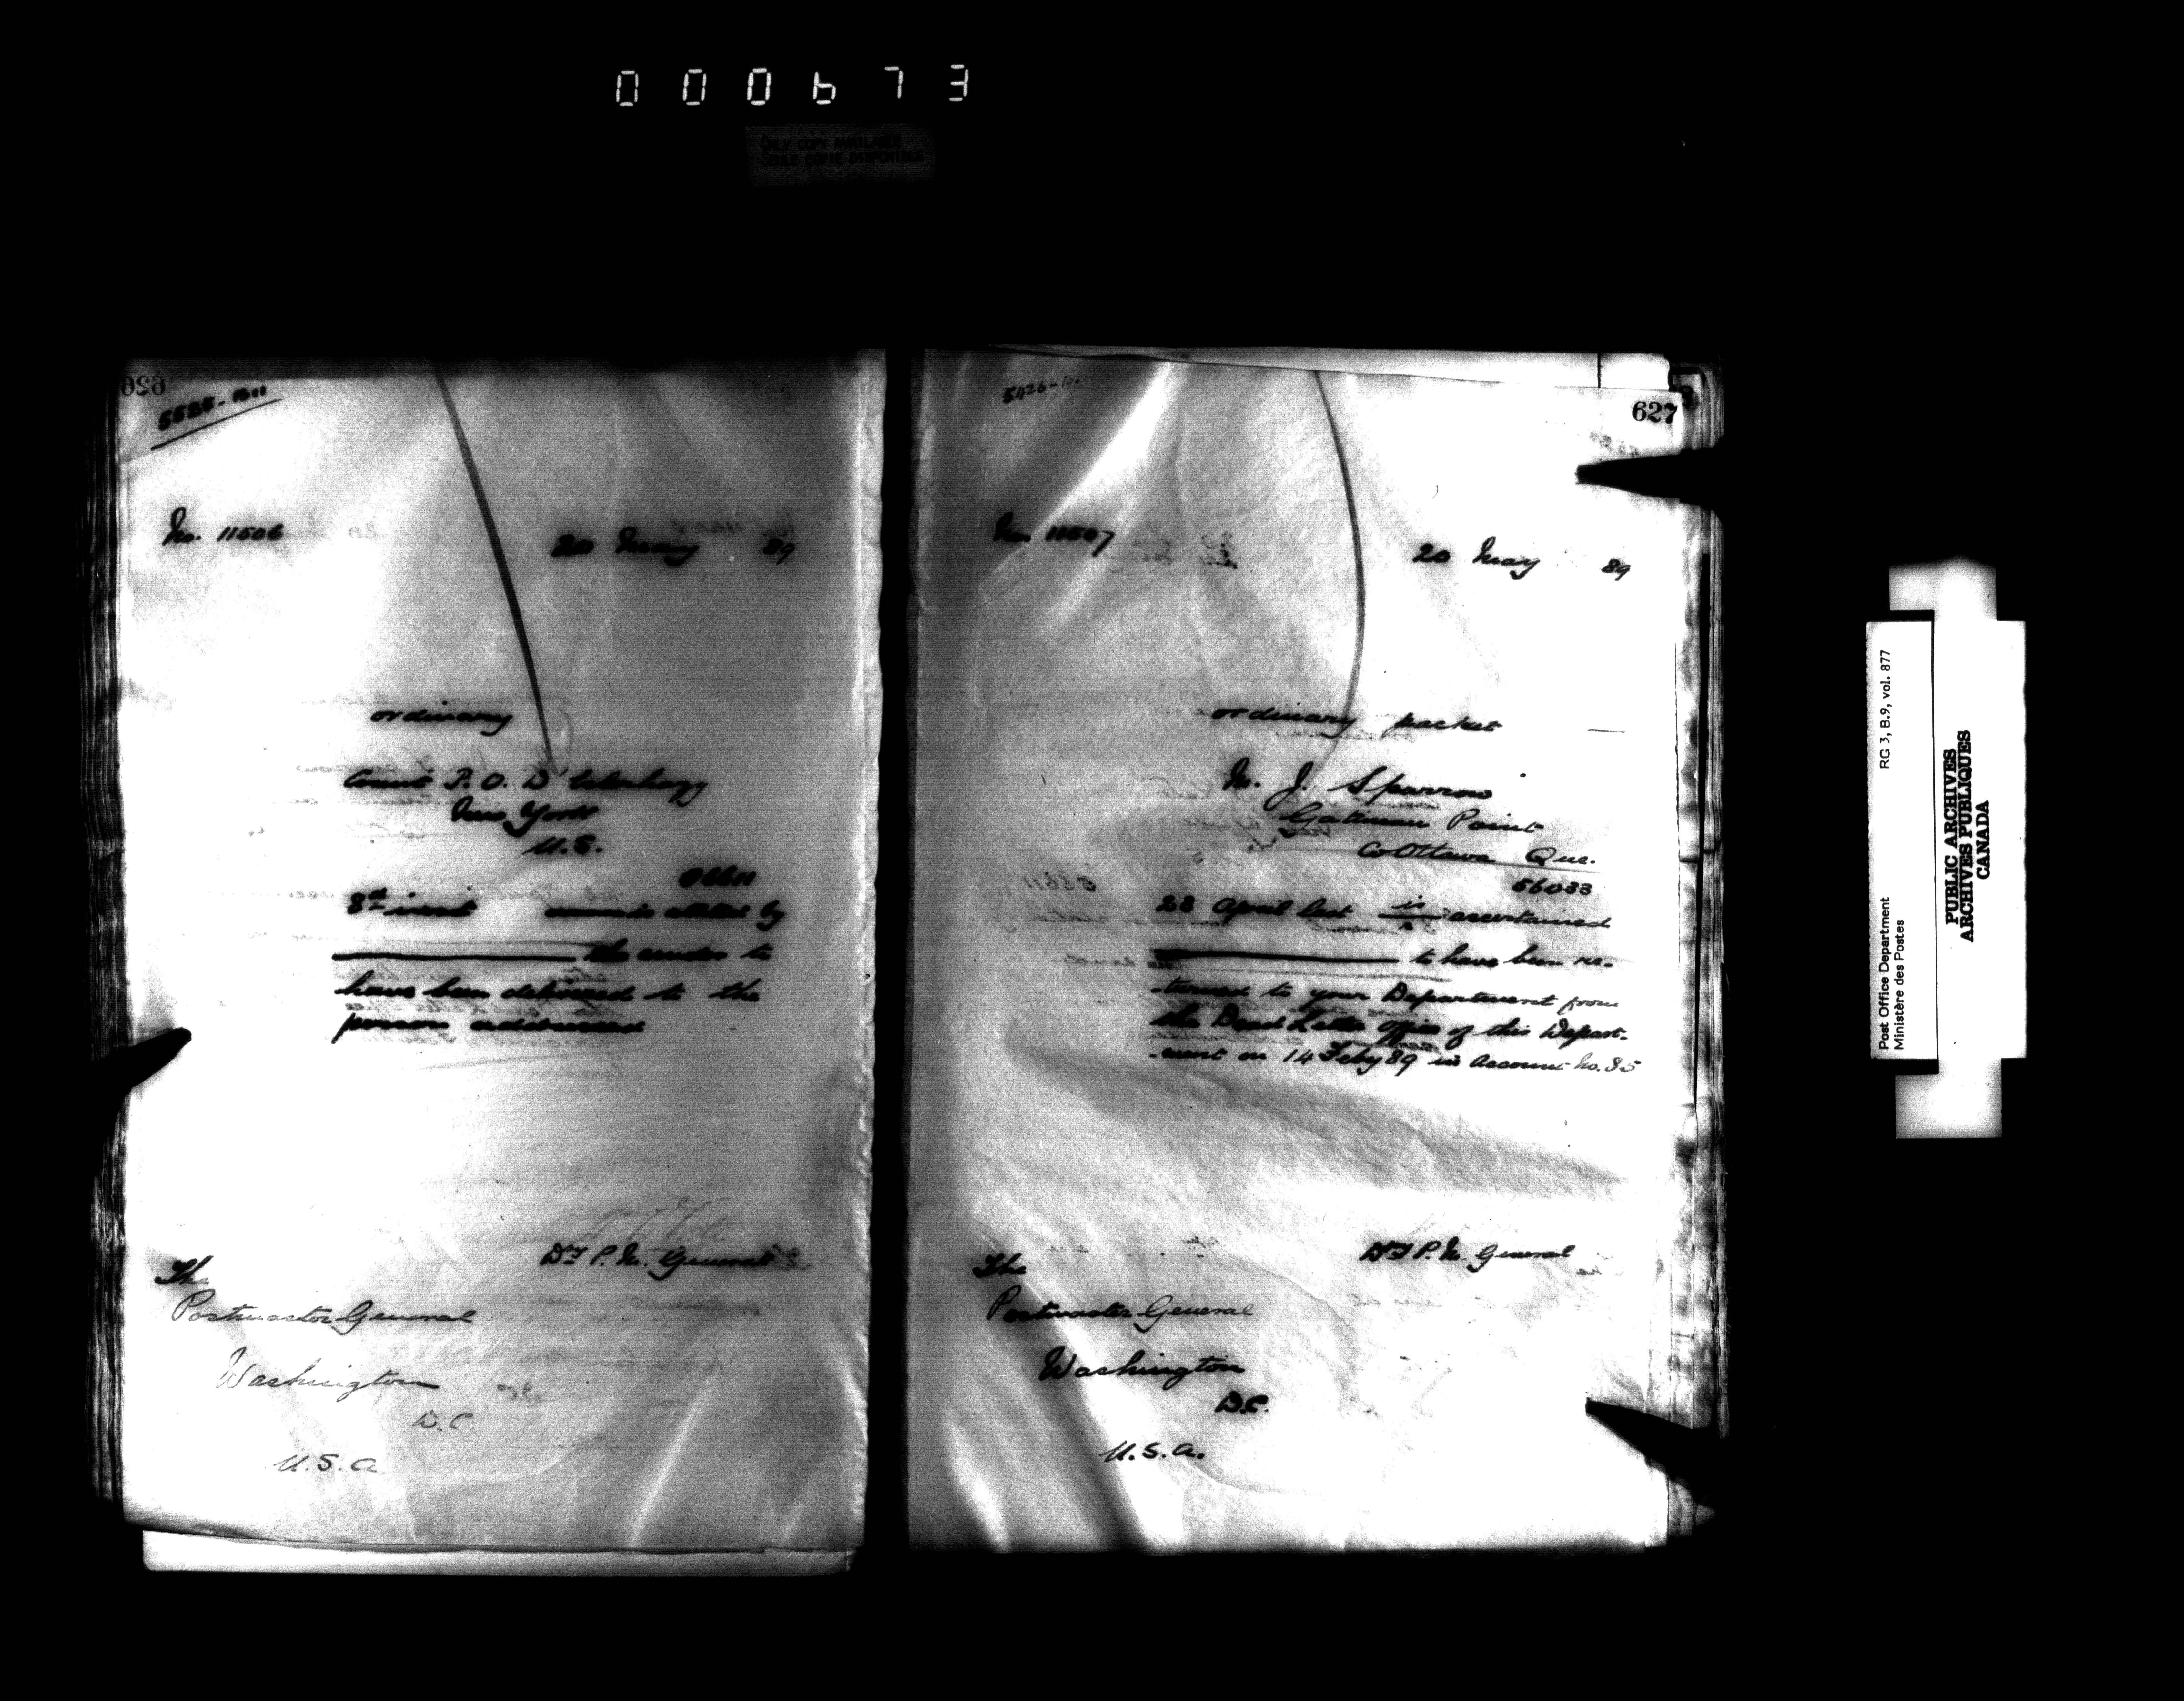 000673
ONLY COPY AVAILABLE
SEULE COPIE DISPONIBLE
626
No. 11506
20 May 89
ordinary
Count P. O. D'
New York
U.S.
8th inst is stated by
the sender to
have been delivered to the
person addressed
Dy P. M. General
The
Postmaster General
Washington
D.C.
U.S.A
5426-
627
No. 11507
20 May 89
ordinary packet
M. J. Sparrow
Gatineau Point
Co Ottawa Que.
56033
23 April last is ascertained
to have been re-
-turned to your Department from
the Dead Letter Office of this Depart-
-ment on 14 Feby 89 in Account No. 85
Dy P. M. General
The
Postmaster General
Washington
D.C.
U.S.A.
Post Office Department
Ministère des Postes
RG 3, B.9, vol. 877
PUBLIC ARCHIVES
ARCHIVES PUBLIQUES
CANADA